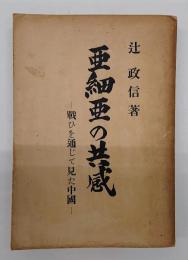 辻政信著
亜細亜の共感
―戦ひを通じて見た中國―